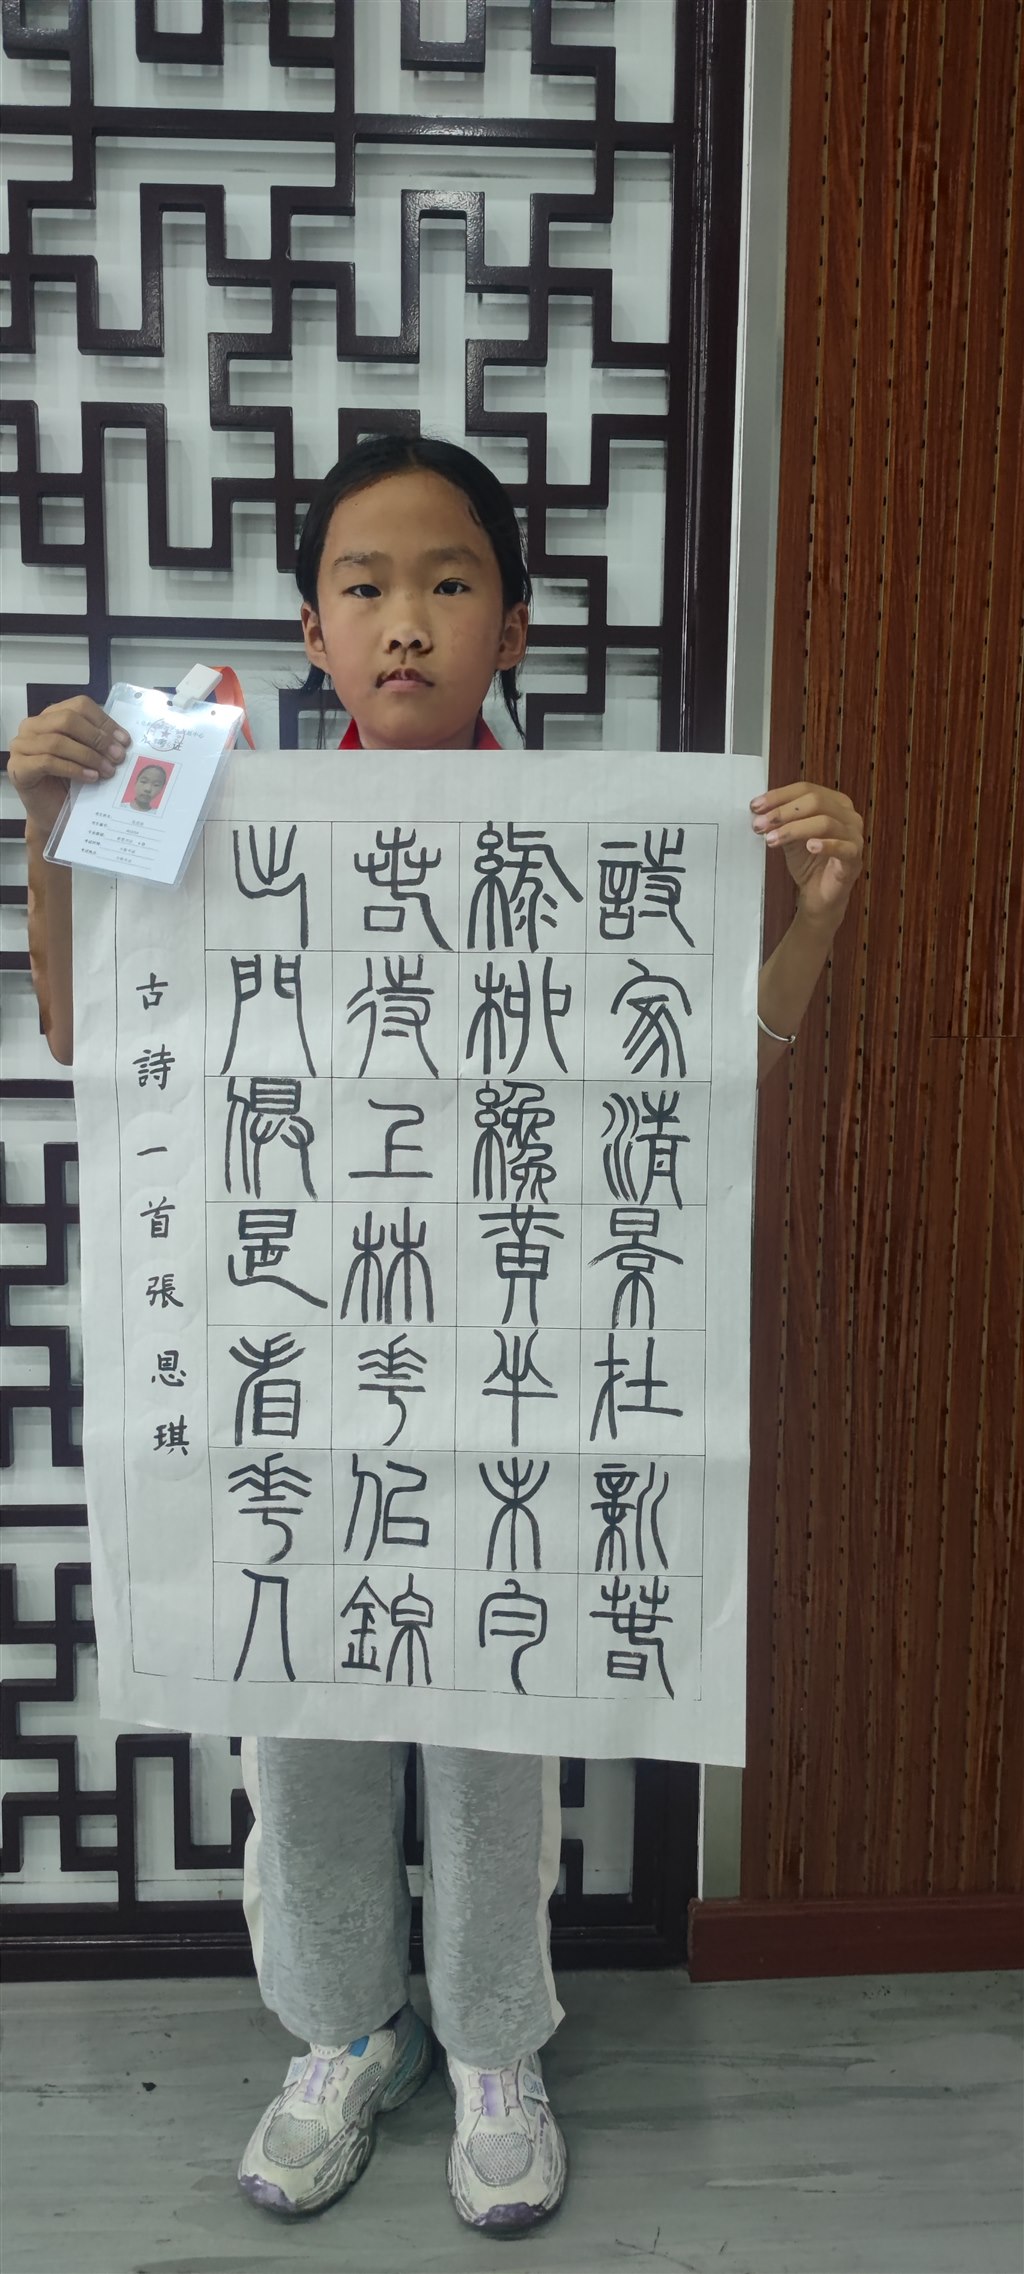 詩家清景在新春
綠柳纔黃半未勻
若待上林華似錦
出門俱是看華人
古詩一首張思琪
准考证